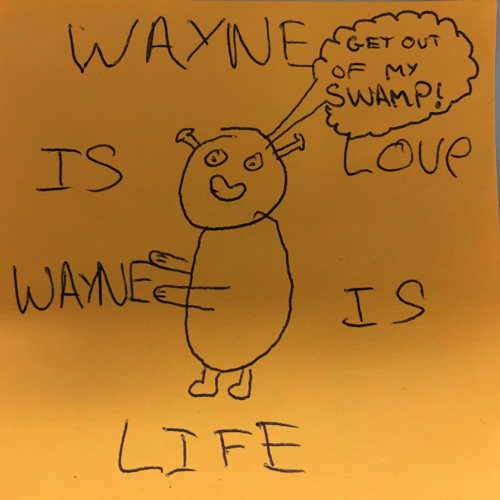 WAYNE
GET OUT
OF MY
SWAMP!
IS LOVE
WAYNE IS
LIFE